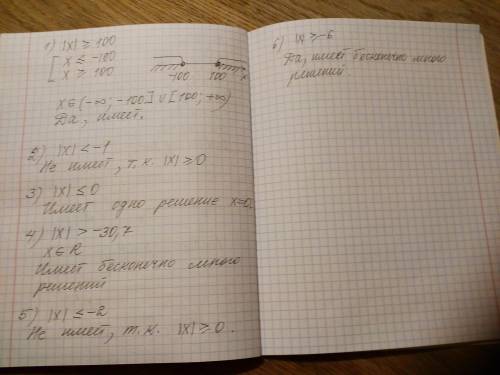 1) |x| ≥ 100
[ x ≤ -100
x ≥ 100
-100 100 x
x ∈ (-∞; -100] ∪ [100; +∞)
Да, имеет.
2) |x| < -1
Не имеет, т.к. |x| ≥ 0
3) |x| ≤ 0
Имеет одно решение x=0.
4) |x| > -30,7
x ∈ R
Имеет бесконечно много
решений
5) |x| ≤ -2
Не имеет, т.к. |x| ≥ 0.
6) |x| ≥ -6
Да, имеет бесконечно много
решений.